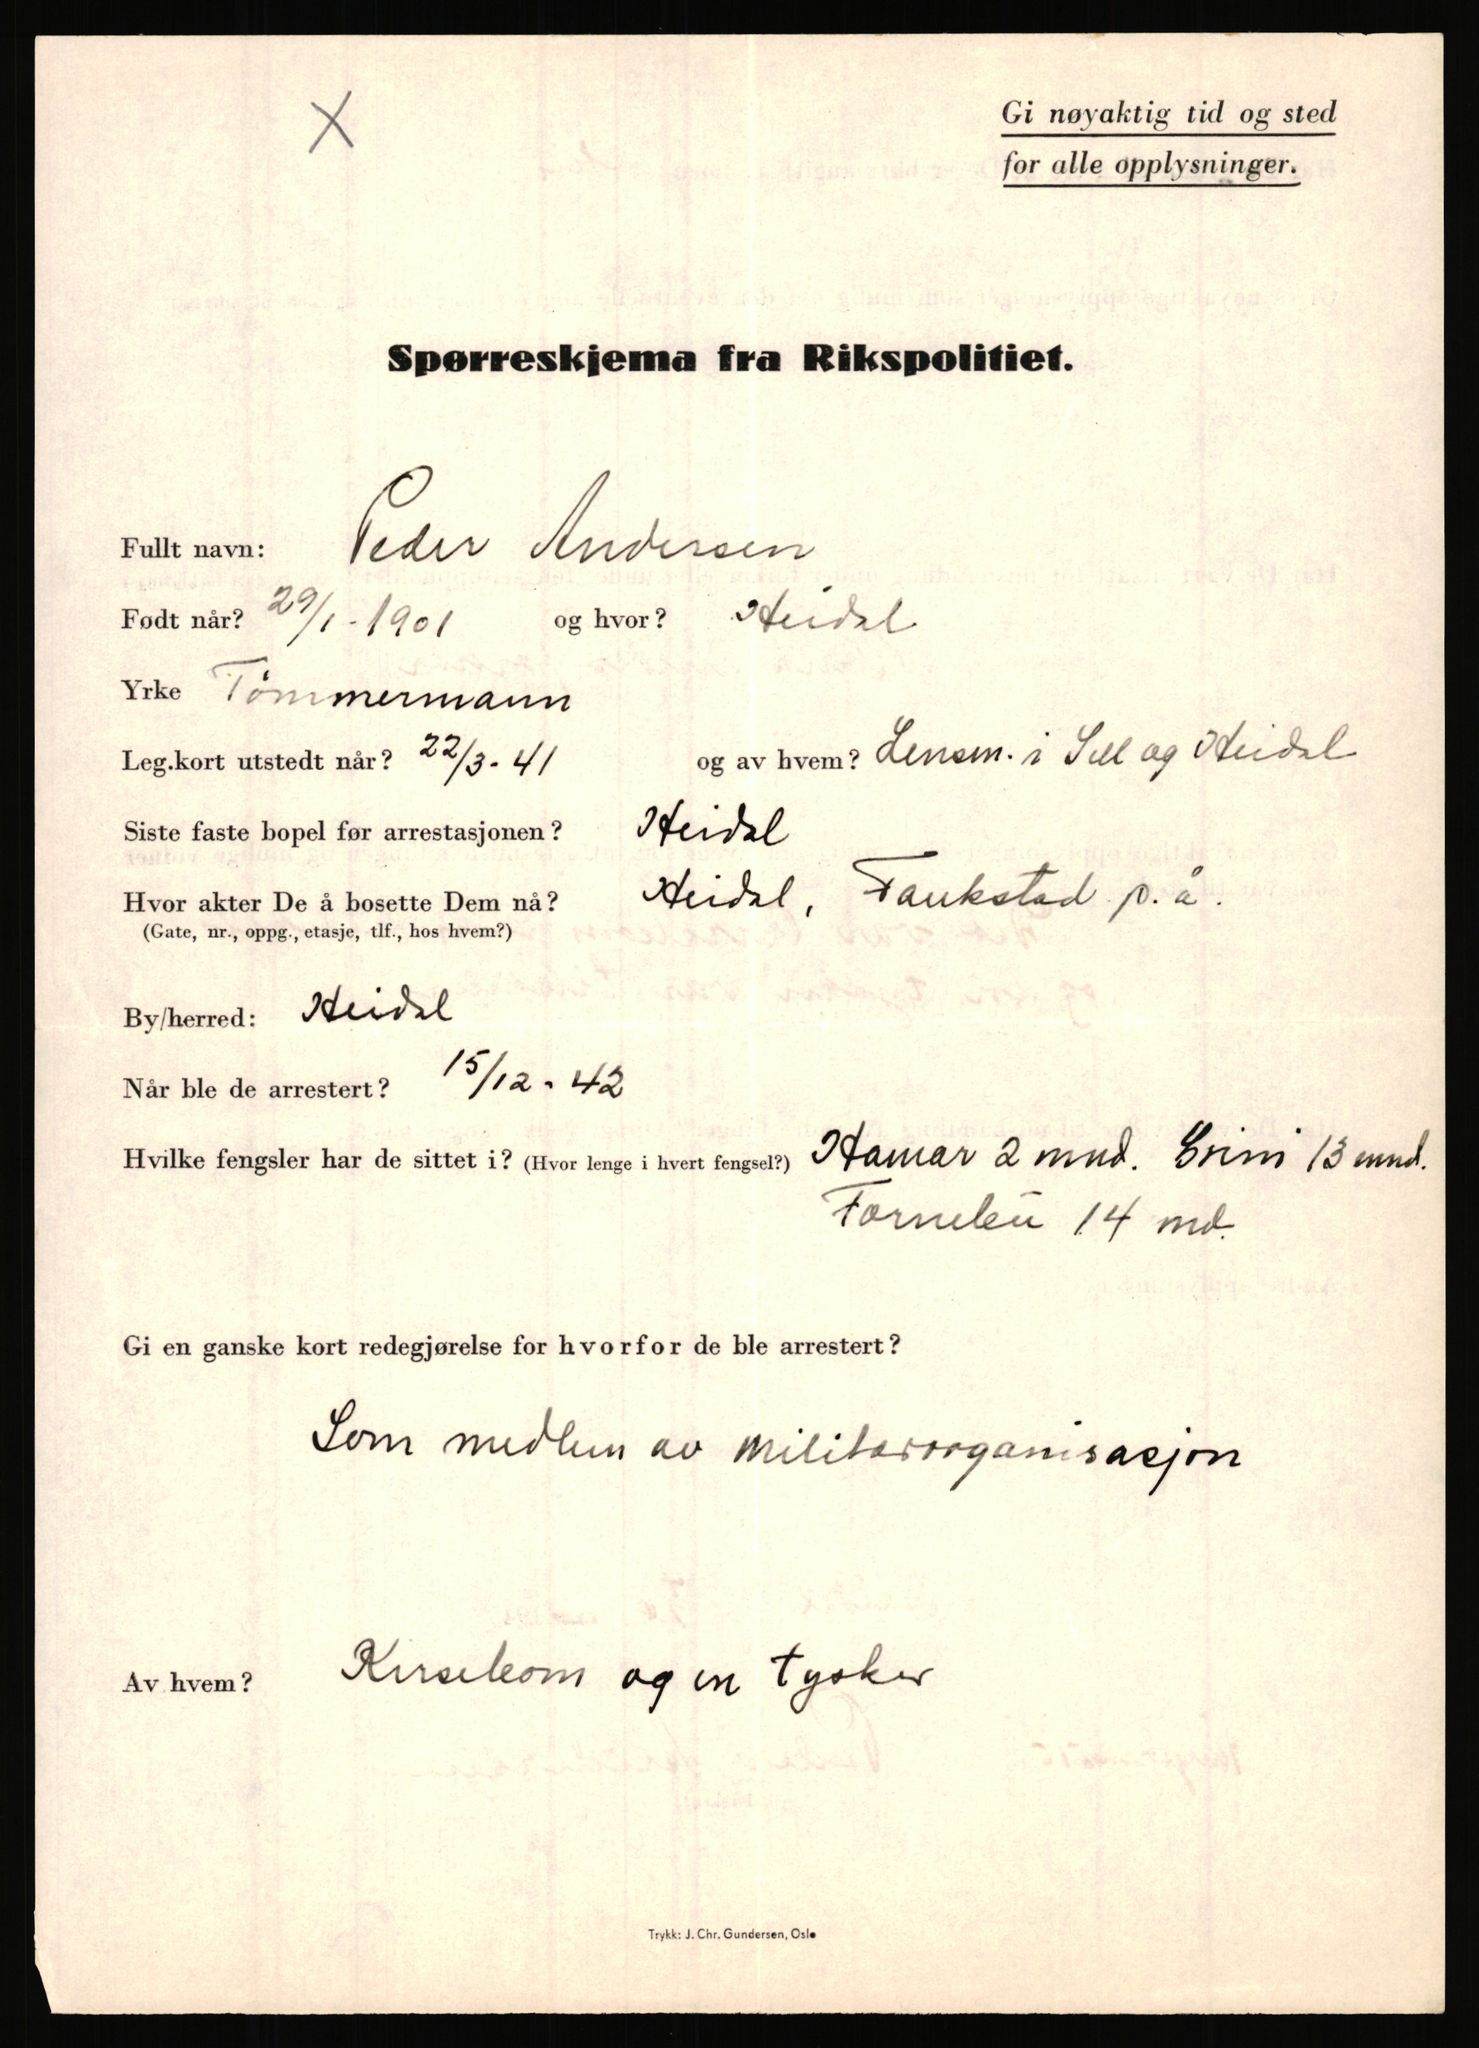 Gi nøyaktig tid og sted
for alle opplysninger.
Spørreskjema fra Rikspolitiet.
Fullt navn: Peder Andersen
Født når? 29/1-1901 og hvor? Heidal
Yrke Tømmermann
Leg.kort utstedt når? 22/3-41 og av hvem? Lensm. i Sell og Heidal
Siste faste bopel før arrestasjonen? Heidal
Hvor akter De å bosette Dem nå? Heidal, Faukstad p.å.
(Gate, nr., oppg., etasje, tlf., hos hvem?)
By/herred: Heidal
Når ble de arrestert? 15/12-42
Hvilke fengsler har de sittet i? (Hvor lenge i hvert fengsel?) Hamar 2 mnd. Grini 13 mnd.
Fornebu 14 md.
Gi en ganske kort redegjørelse for hvorfor de ble arrestert?
Som medlem av militærorganisasjon
Av hvem? og en tysker
Trykk: J. Chr. Gundersen, Oslo